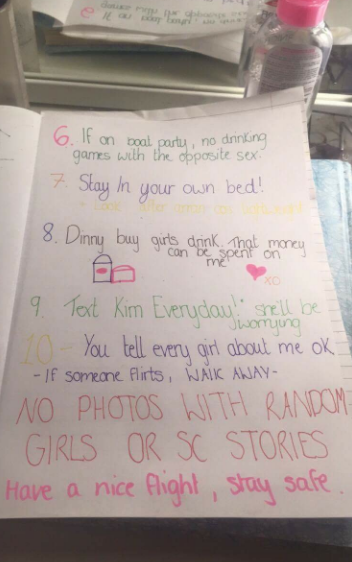 6. If on boat party, no drinking
games with the opposite sex.
7. Stay In your own bed!
8. Dinny buy girls drink. That money
can be spent on
me
xo
9. Text Kim Everyday! she'll be
worrying
10- You tell every girl about me OK.
- If someone flirts, WALK AWAY-
NO PHOTOS WITH RANDOM
GIRLS OR SC STORIES
Have a nice flight, stay safe.